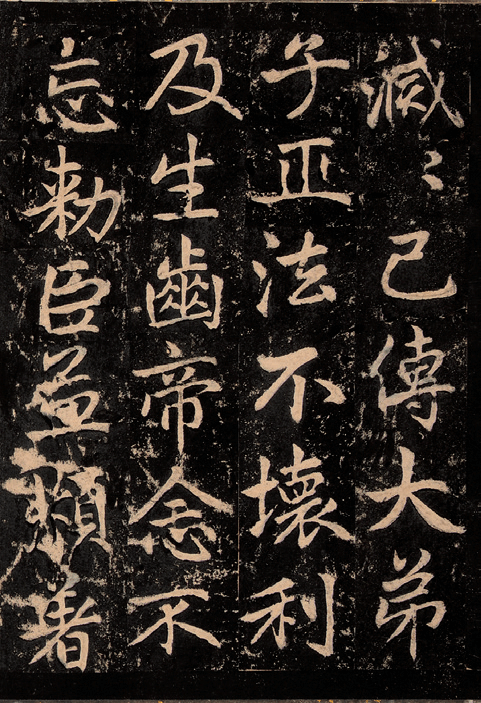 滅〻已傳大弟
子正法不壞利
及生齒帝念不
忘勅臣孟頫著